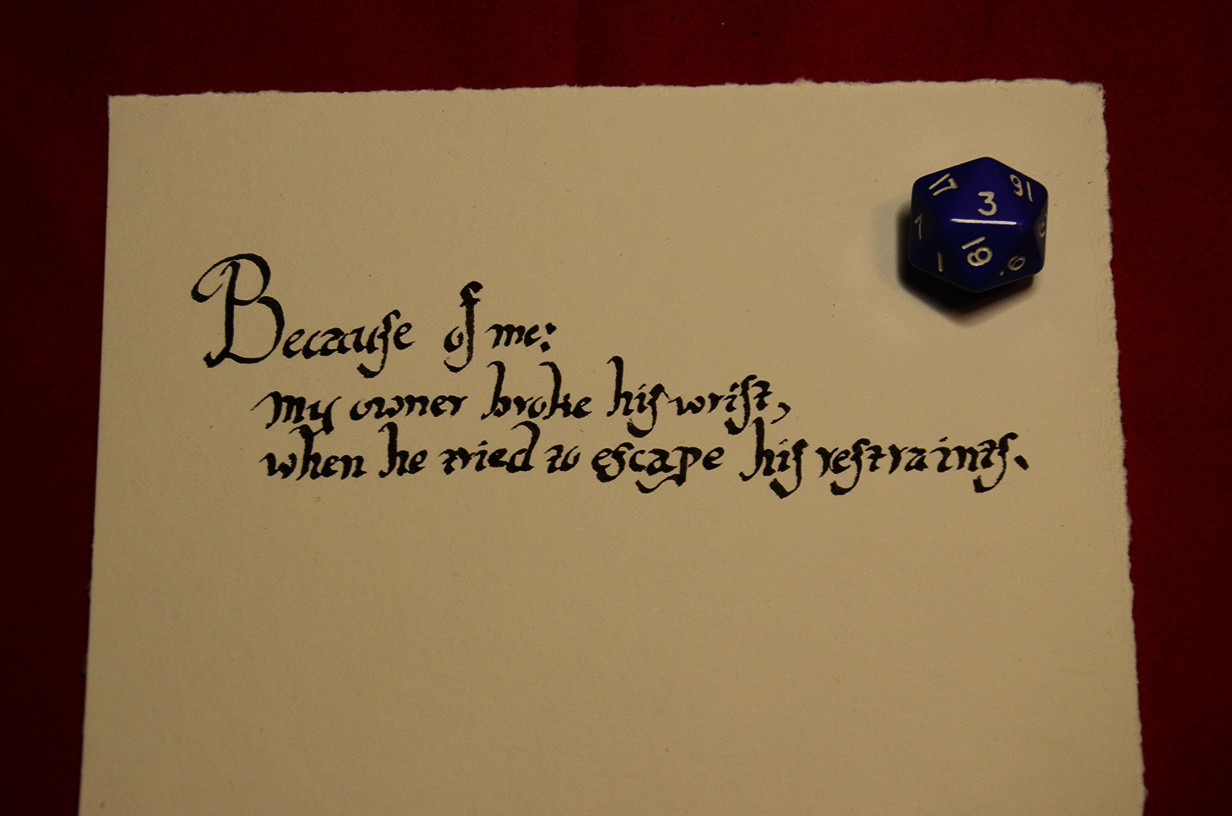 Because of me:
my owner broke his wrist,
when he tried to escape his restraints.
17
3
16
7
19
1